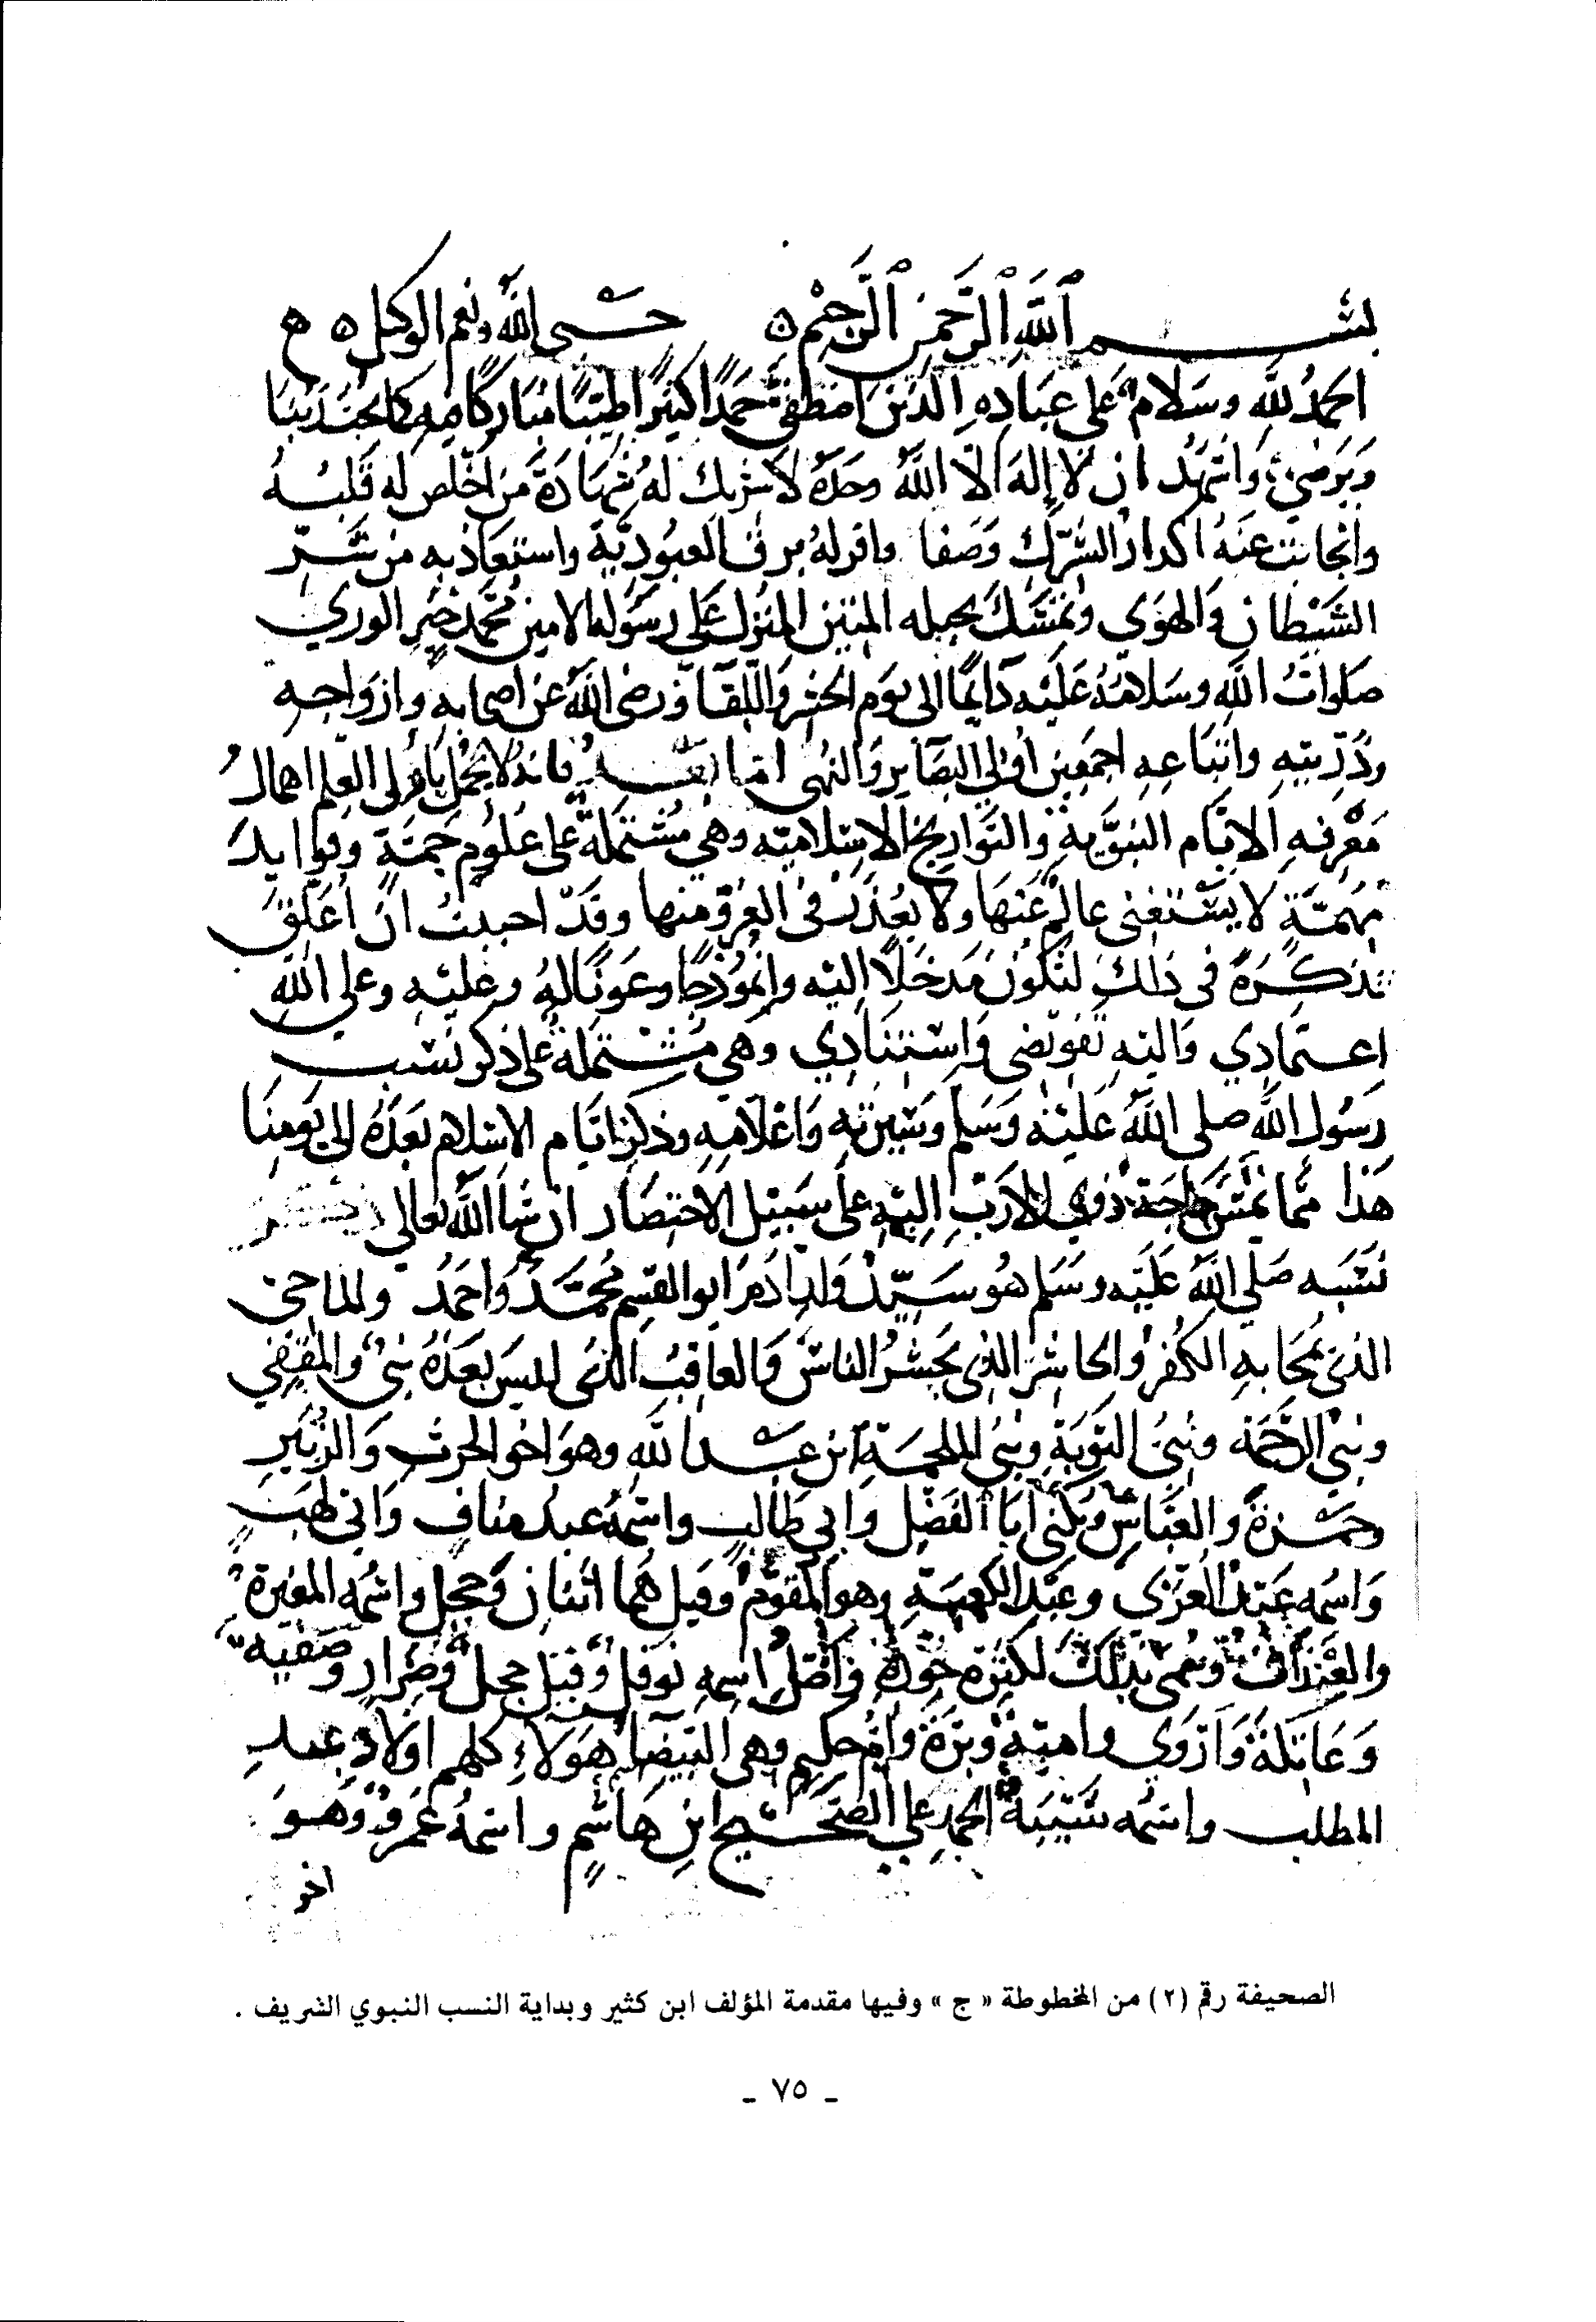 بسم ٱللّه ٱلرّحمن ٱلرّحيم ه حسبي اللّه ونعم الوكيل ه
الحمد للّه وسلام على عباده الذين اصطفى حمدًا كثيرًا طيّبًا مباركًا فيه كما يحب ربنا
ويرضى واشهد ان لا إله الّا اللّه وحده لا شريك له شهادة من اخلص له قلبه
وانجابت عنه اكدار الشرك وصفا واقر له برق العبوديّة واستعاذ به من شر
الشيطان والهوي وتمسّك بحبله المتين المنزل على رسوله الامين محمد خير الوري
صلوات اللّه وسلامه عليه دايمًا الى يوم الحشر واللّقا ورضى اللّه عن اصحابه وازواجه
وذرّيته واتباعه اجمعين اولي البصاير والنهى امّا بعد فانه لا يجمل باولى العلم اهمال
معرفه الايّام النبوّية والتواريخ الاسلاميّه وهي مشتملة على علوم جمّة وفوايد
مهمّة لا يستغنى عالم عنها ولا يعذر فى العرو منها وقد احببت ان اعلق
تذكرة فى ذلك لتكون مدخلًا اليه وانموذجًا وعونًا له وعليه وعلي اللّه
اعتمادي واليه تفويضي واستنادي وهي مشتملة على ذكر نسب
رسول اللّه صلى اللّه عليه وسلم وسيرته واعلامه وذكر ايّام الاسلام بعده الى يومنا
هذا ممّا تمس حاجة ذوي الارب اليه على سبيل الاختصار ان شا اللّه تعالى
نسبه صلي اللّه عليه وسلم هو سيّد ولد ادم ابو القسم محمّد واحمد والماحي
الذي يمحا به الكفر والحاشر الذي يحشر الناس والعاقب الذي ليس بعده نبي والمقفي
ونبي الرحمة ونبي التوبة ونبي الملحمة ابن عبد اللّه وهو اخو الحرث والزبير
وحمزة والعباس ويكنى ابا الفضل وابي طالب واسمه عبد مناف وابي لهب
واسمه عبد العزي وعبد الكعبة وهو المقوّم وقيل هما اثنان وحجل واسمه المغيرة
والغيداق وسمي بذلك لكثرة جوده واصل اسمه نوفل وقيل حجل وضرار وصفيه
وعاتكة واروى واميّة وبرة وام حكيم وهى البيضا هولاء كلهم اولاد عبد
المطلب واسمه شيبة الحمد على الصحيح ابن هاشم واسمه عمرو وهو
اخو
الصحيفة رقم (٢) من المخطوطة « ج » وفيها مقدمة المؤلف ابن كثير وبداية النسب النبوي الشريف .
ـ ٧٥ ـ